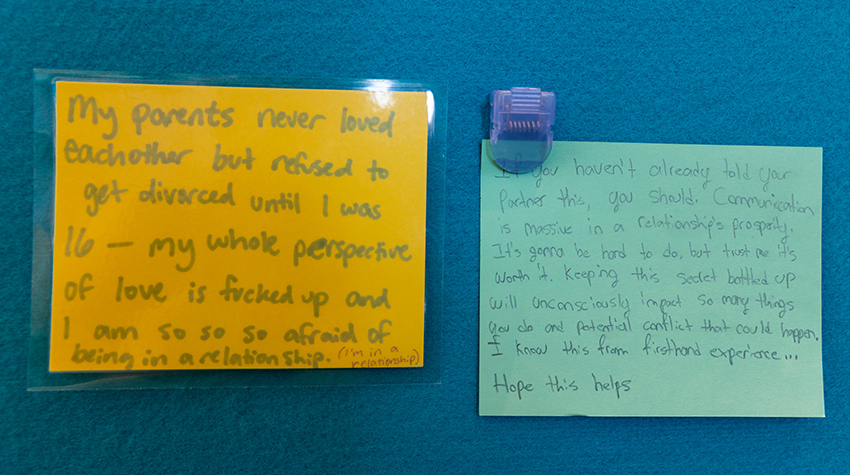 My parents never loved
eachother but refused to
get divorced until I was
16 — my whole perspective
of love is fucked up and
I am so so so afraid of
being in a relationship. (I'm in a
relationship)
If you haven't already told your
partner this, you should. Communication
is massive in a relationship's prosperity.
It's gonna be hard to do, but trust me it's
worth it. Keeping this secret bottled up
will unconsciously impact so many things
you do and potential conflict that could happen.
I know this from firsthand experience...
Hope this helps